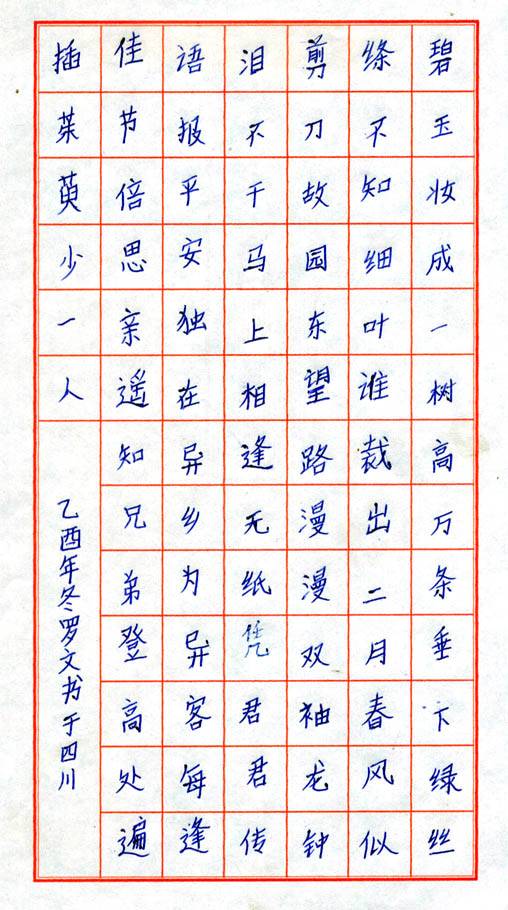 碧玉妆成一树高万条垂下绿丝
绦不知细叶谁裁出二月春风似
剪刀故园东望路漫漫双袖龙钟
泪不干马上相逢无纸凭君君传
语报平安独在异乡为异客每逢
佳节倍思亲遥知兄弟登高处遍
插茱萸少一人
乙酉年冬罗文书于四川